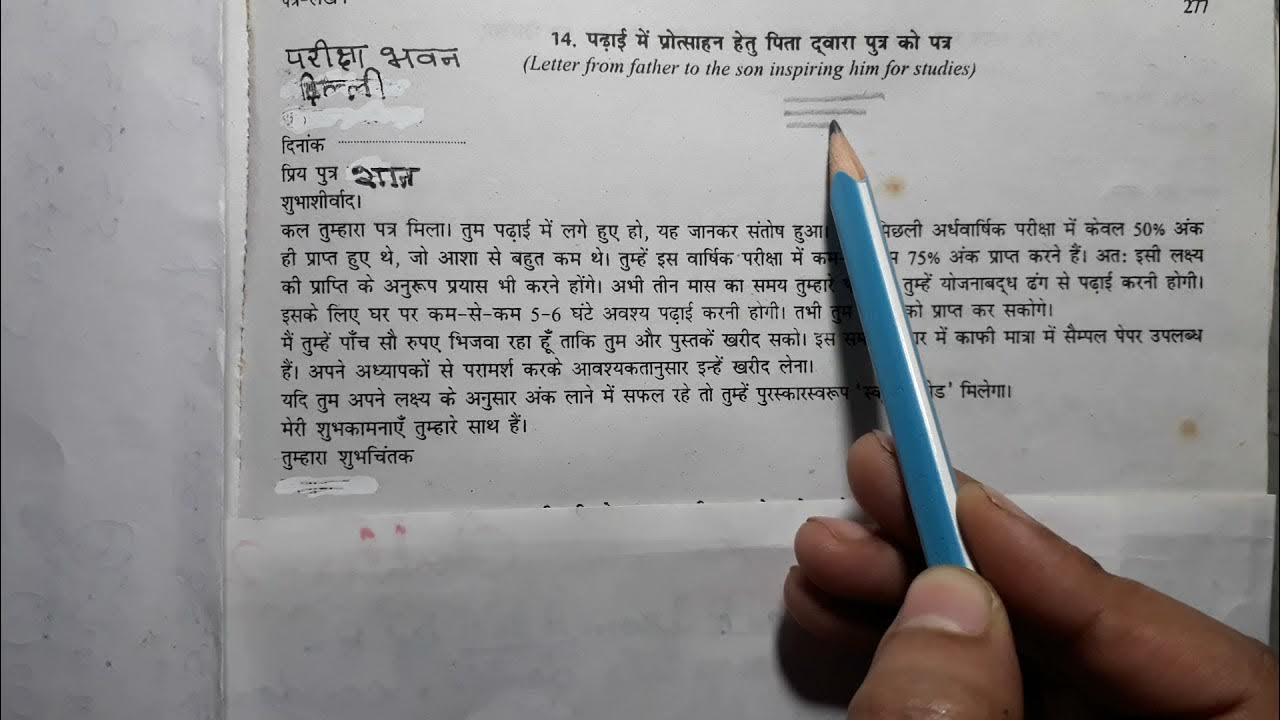 पत्र-लेखन
277
14. पढ़ाई में प्रोत्साहन हेतु पिता द्वारा पुत्र को पत्र
(Letter from father to the son inspiring him for studies)
परीक्षा भवन
दिल्ली
दिनांक ..............................
प्रिय पुत्र शान
शुभाशीर्वाद।
कल तुम्हारा पत्र मिला। तुम पढ़ाई में लगे हुए हो, यह जानकर संतोष हुआ। पिछली अर्धवार्षिक परीक्षा में केवल 50% अंक
ही प्राप्त हुए थे, जो आशा से बहुत कम थे। तुम्हें इस वार्षिक परीक्षा में 75% अंक प्राप्त करने हैं। अतः इसी लक्ष्य
की प्राप्ति के अनुरूप प्रयास भी करने होंगे। अभी तीन मास का समय तुम्हारे तुम्हें योजनाबद्ध ढंग से पढ़ाई करनी होगी।
इसके लिए घर पर कम-से-कम 5-6 घंटे अवश्य पढ़ाई करनी होगी। तभी तुम को प्राप्त कर सकोगे।
मैं तुम्हें पाँच सौ रुपए भिजवा रहा हूँ ताकि तुम और पुस्तकें खरीद सको। इस में काफी मात्रा में सैम्पल पेपर उपलब्ध
हैं। अपने अध्यापकों से परामर्श करके आवश्यकतानुसार इन्हें खरीद लेना।
यदि तुम अपने लक्ष्य के अनुसार अंक लाने में सफल रहे तो तुम्हें पुरस्कारस्वरूप मिलेगा।
मेरी शुभकामनाएँ तुम्हारे साथ हैं।
तुम्हारा शुभचिंतक